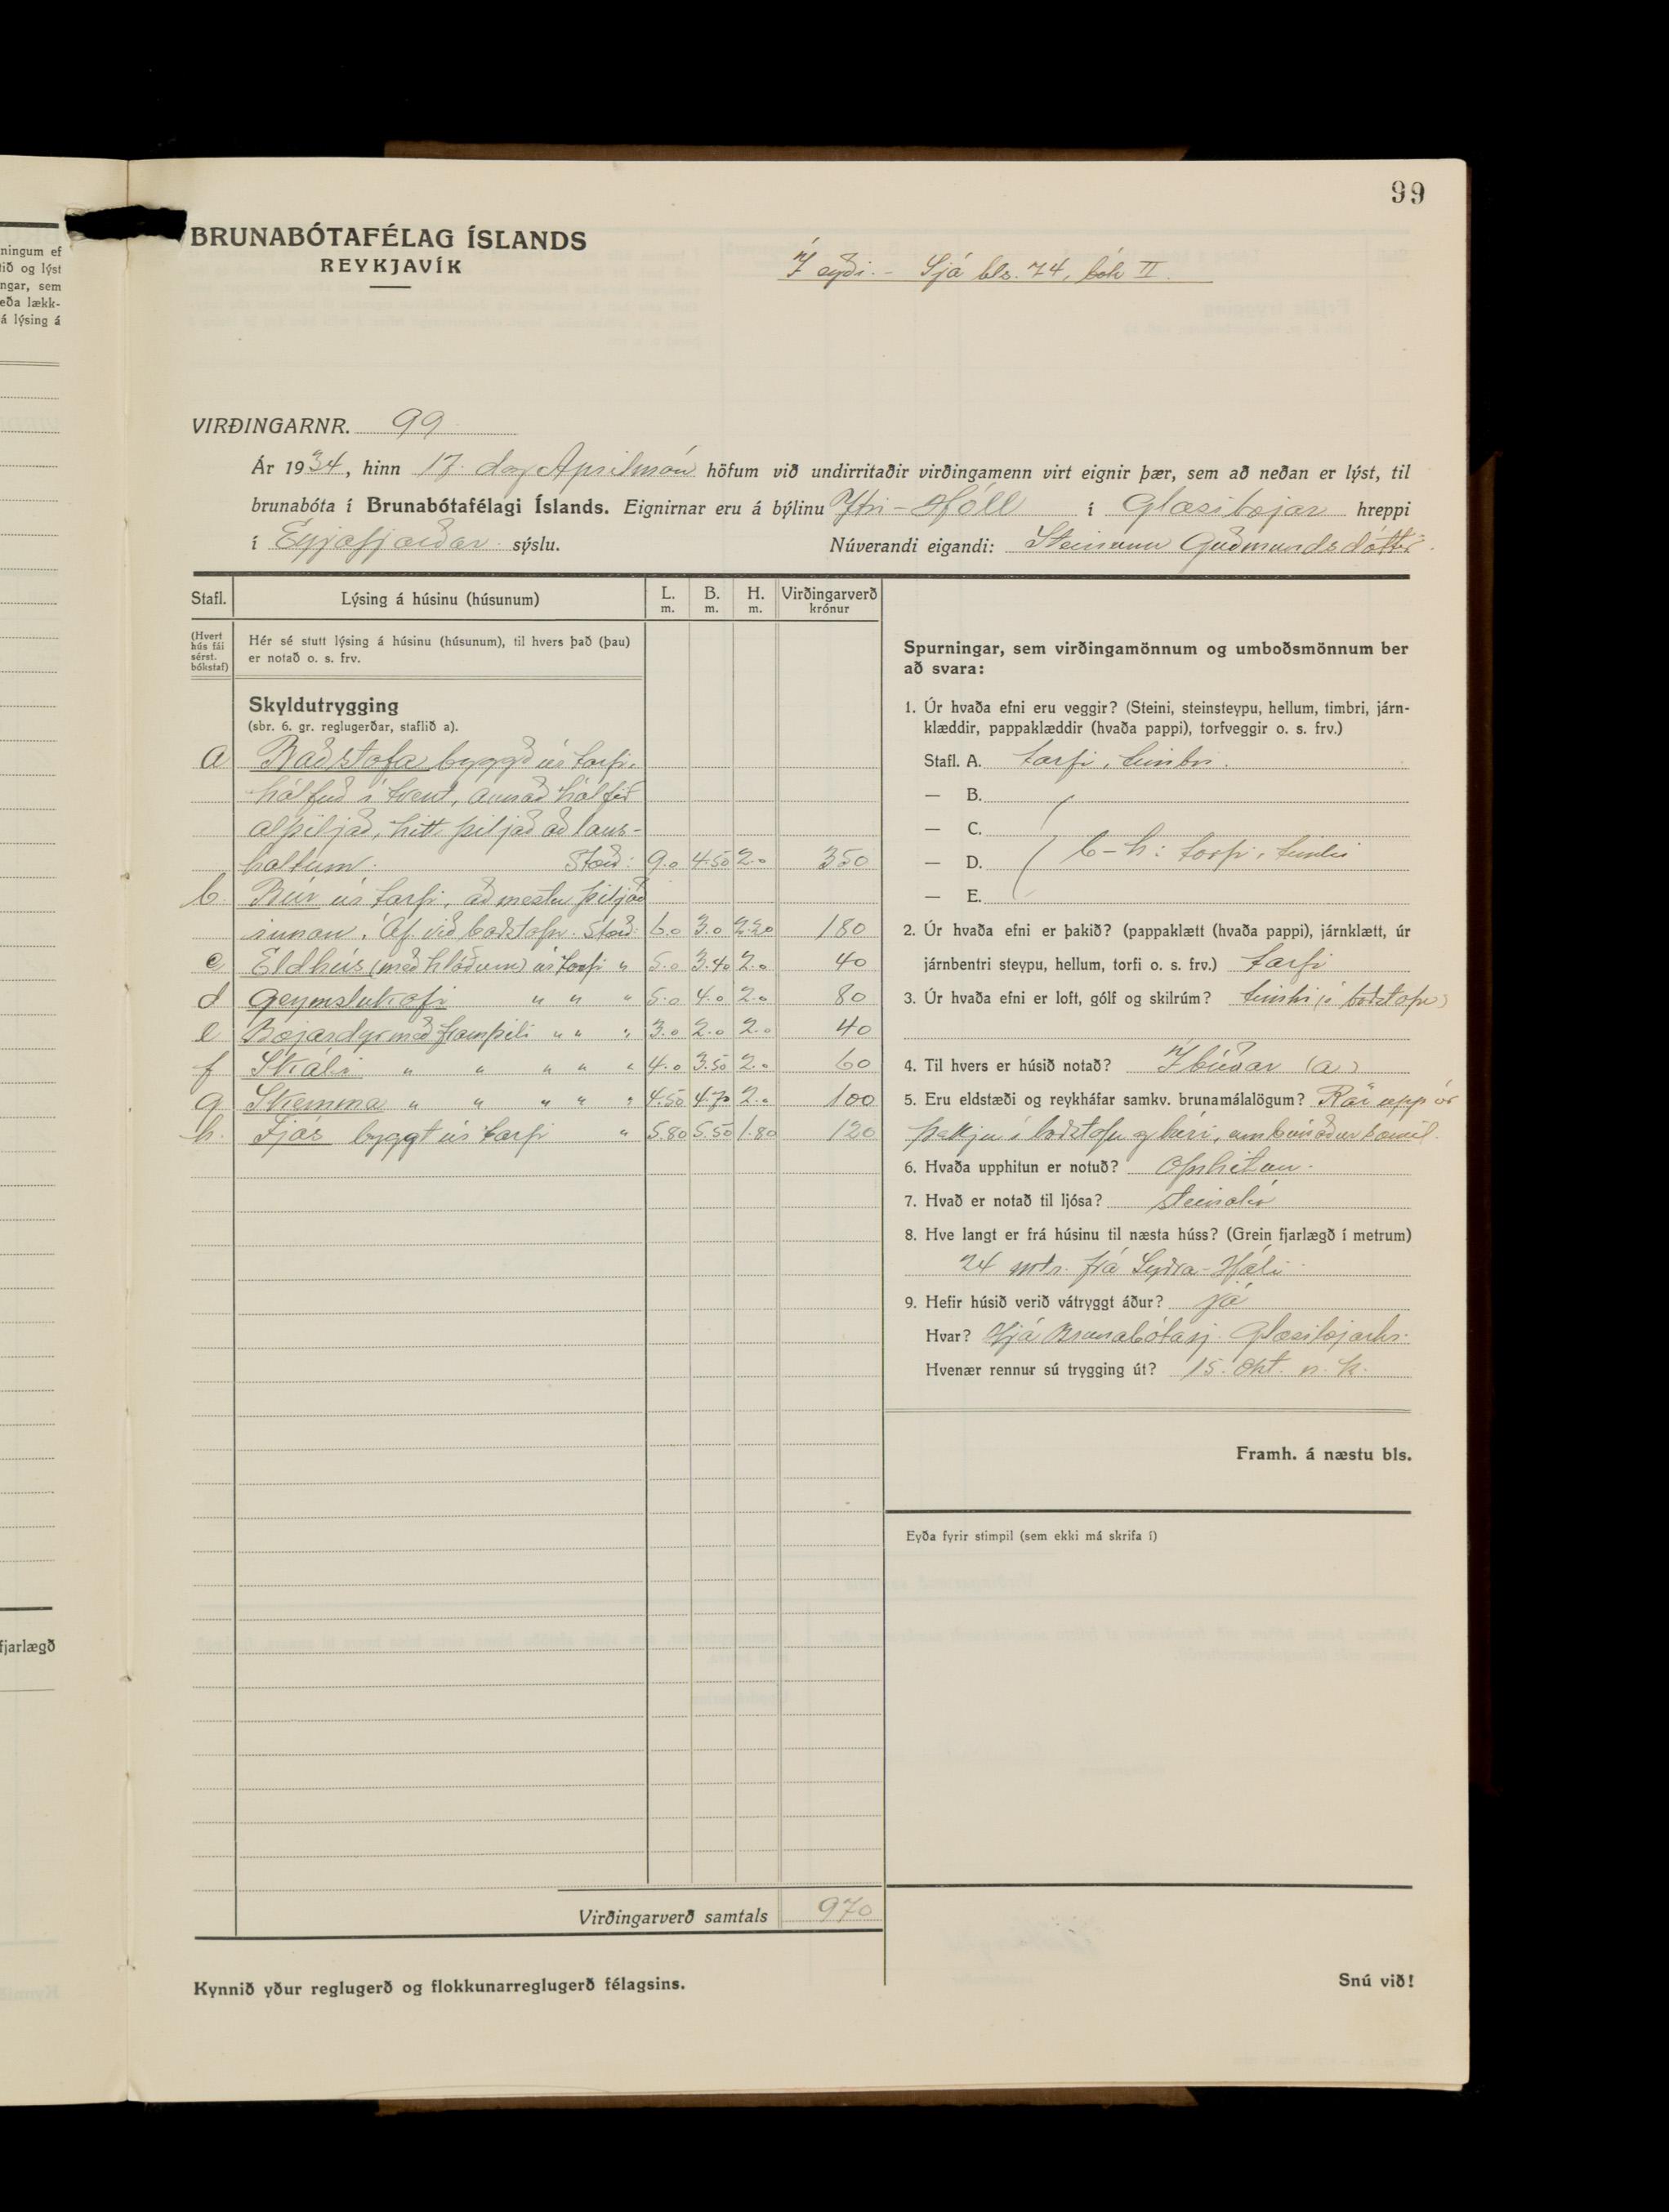 99
BRUNABÓTAFÉLAG ÍSLANDS
REYKJAVÍK
Í eyði. - Sjá bls. 74, bók II.
VIRÐINGARNR. 99
Ár 1934, hinn 17. dag Aprilmán höfum við undirritaðir virðingamenn virt eignir þær, sem að neðan er lýst, til
brunabóta í Brunabótafélagi Íslands. Eignirnar eru á býlinu Ytri-Hóll í Glæsibæjar hreppi
í Eyjafjarðar sýslu. Núverandi eigandi: Steinunn Guðmundsdóttir.
Stafl. Lýsing á húsinu (húsunum) L. m. B. m. H. m. Virðingarverð krónur
(Hvert hús fái sérst. bókstaf)
Hér sé stutt lýsing á húsinu (húsunum), til hvers það (þau)
er notað o. s. frv.
Skyldutrygging
(sbr. 6. gr. reglugerðar, staflið a).
a Baðstofa byggð úr torfi,
hólfuð í tvent, annað hólfið
alþiljað, hitt þiljað að laus-
holtum. Stærð: 9.0 4.50 2.0 350
b. Búr úr torfi, að mestu þiljað
innan. Áf. við baðstofu. Stærð: 6.0 3.0 2.20 180
c Eldhús (með hlóðum) úr torfi " 5.0 3.40 2.0 40
d Geymslukofi " " " 5.0 4.0 2.0 80
e Bæjardyr með framþili " " " 3.0 2.0 2.0 40
f Skáli " " " " " 4.0 3.50 2.0 60
g Skemma " " " " " 4.50 4.70 2.0 100
h. Fjós byggt úr torfi " 5.80 5.50 1.80 120
Virðingarverð samtals 970
Kynnið yður reglugerð og flokkunarreglugerð félagsins.
Spurningar, sem virðingamönnum og umboðsmönnum ber
að svara:
1. Úr hvaða efni eru veggir? (Steini, steinsteypu, hellum, timbri, járn-
klæddir, pappaklæddir (hvaða pappi), torfveggir o. s. frv.)
Stafl. A. torfi, timbri.
— B.
— C.
— D. b-h: torfi, timbri
— E.
2. Úr hvaða efni er þakið? (pappaklætt (hvaða pappi), járnklætt, úr
járnbentri steypu, hellum, torfi o. s. frv.) torfi
3. Úr hvaða efni er loft, gólf og skilrúm? timbri (í baðstofu)
4. Til hvers er húsið notað? Íbúðar (a)
5. Eru eldstæði og reykháfar samkv. brunamálalögum? Rör upp úr
þekju í baðstofu og búri, umbúnaður sæmil.
6. Hvaða upphitun er notuð? Ofnhitun.
7. Hvað er notað til ljósa? steinolía
8. Hve langt er frá húsinu til næsta húss? (Grein fjarlægð í metrum)
24 mtr. frá Syðra-Hóli
9. Hefir húsið verið vátryggt áður? Já
Hvar? Hjá Brunabótasj. Glæsibæjarhr.
Hvenær rennur sú trygging út? 15. Okt. n. k.
Framh. á næstu bls.
Eyða fyrir stimpil (sem ekki má skrifa í)
Snú við!
ningum ef
tið og lýst
ngar, sem
eða lækk-
á lýsing á
fjarlægð